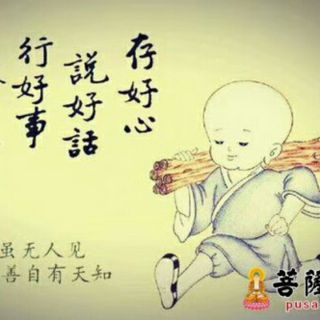 存好心
說好話
行好事
虽无人见
善自有天知
菩薩
pusa